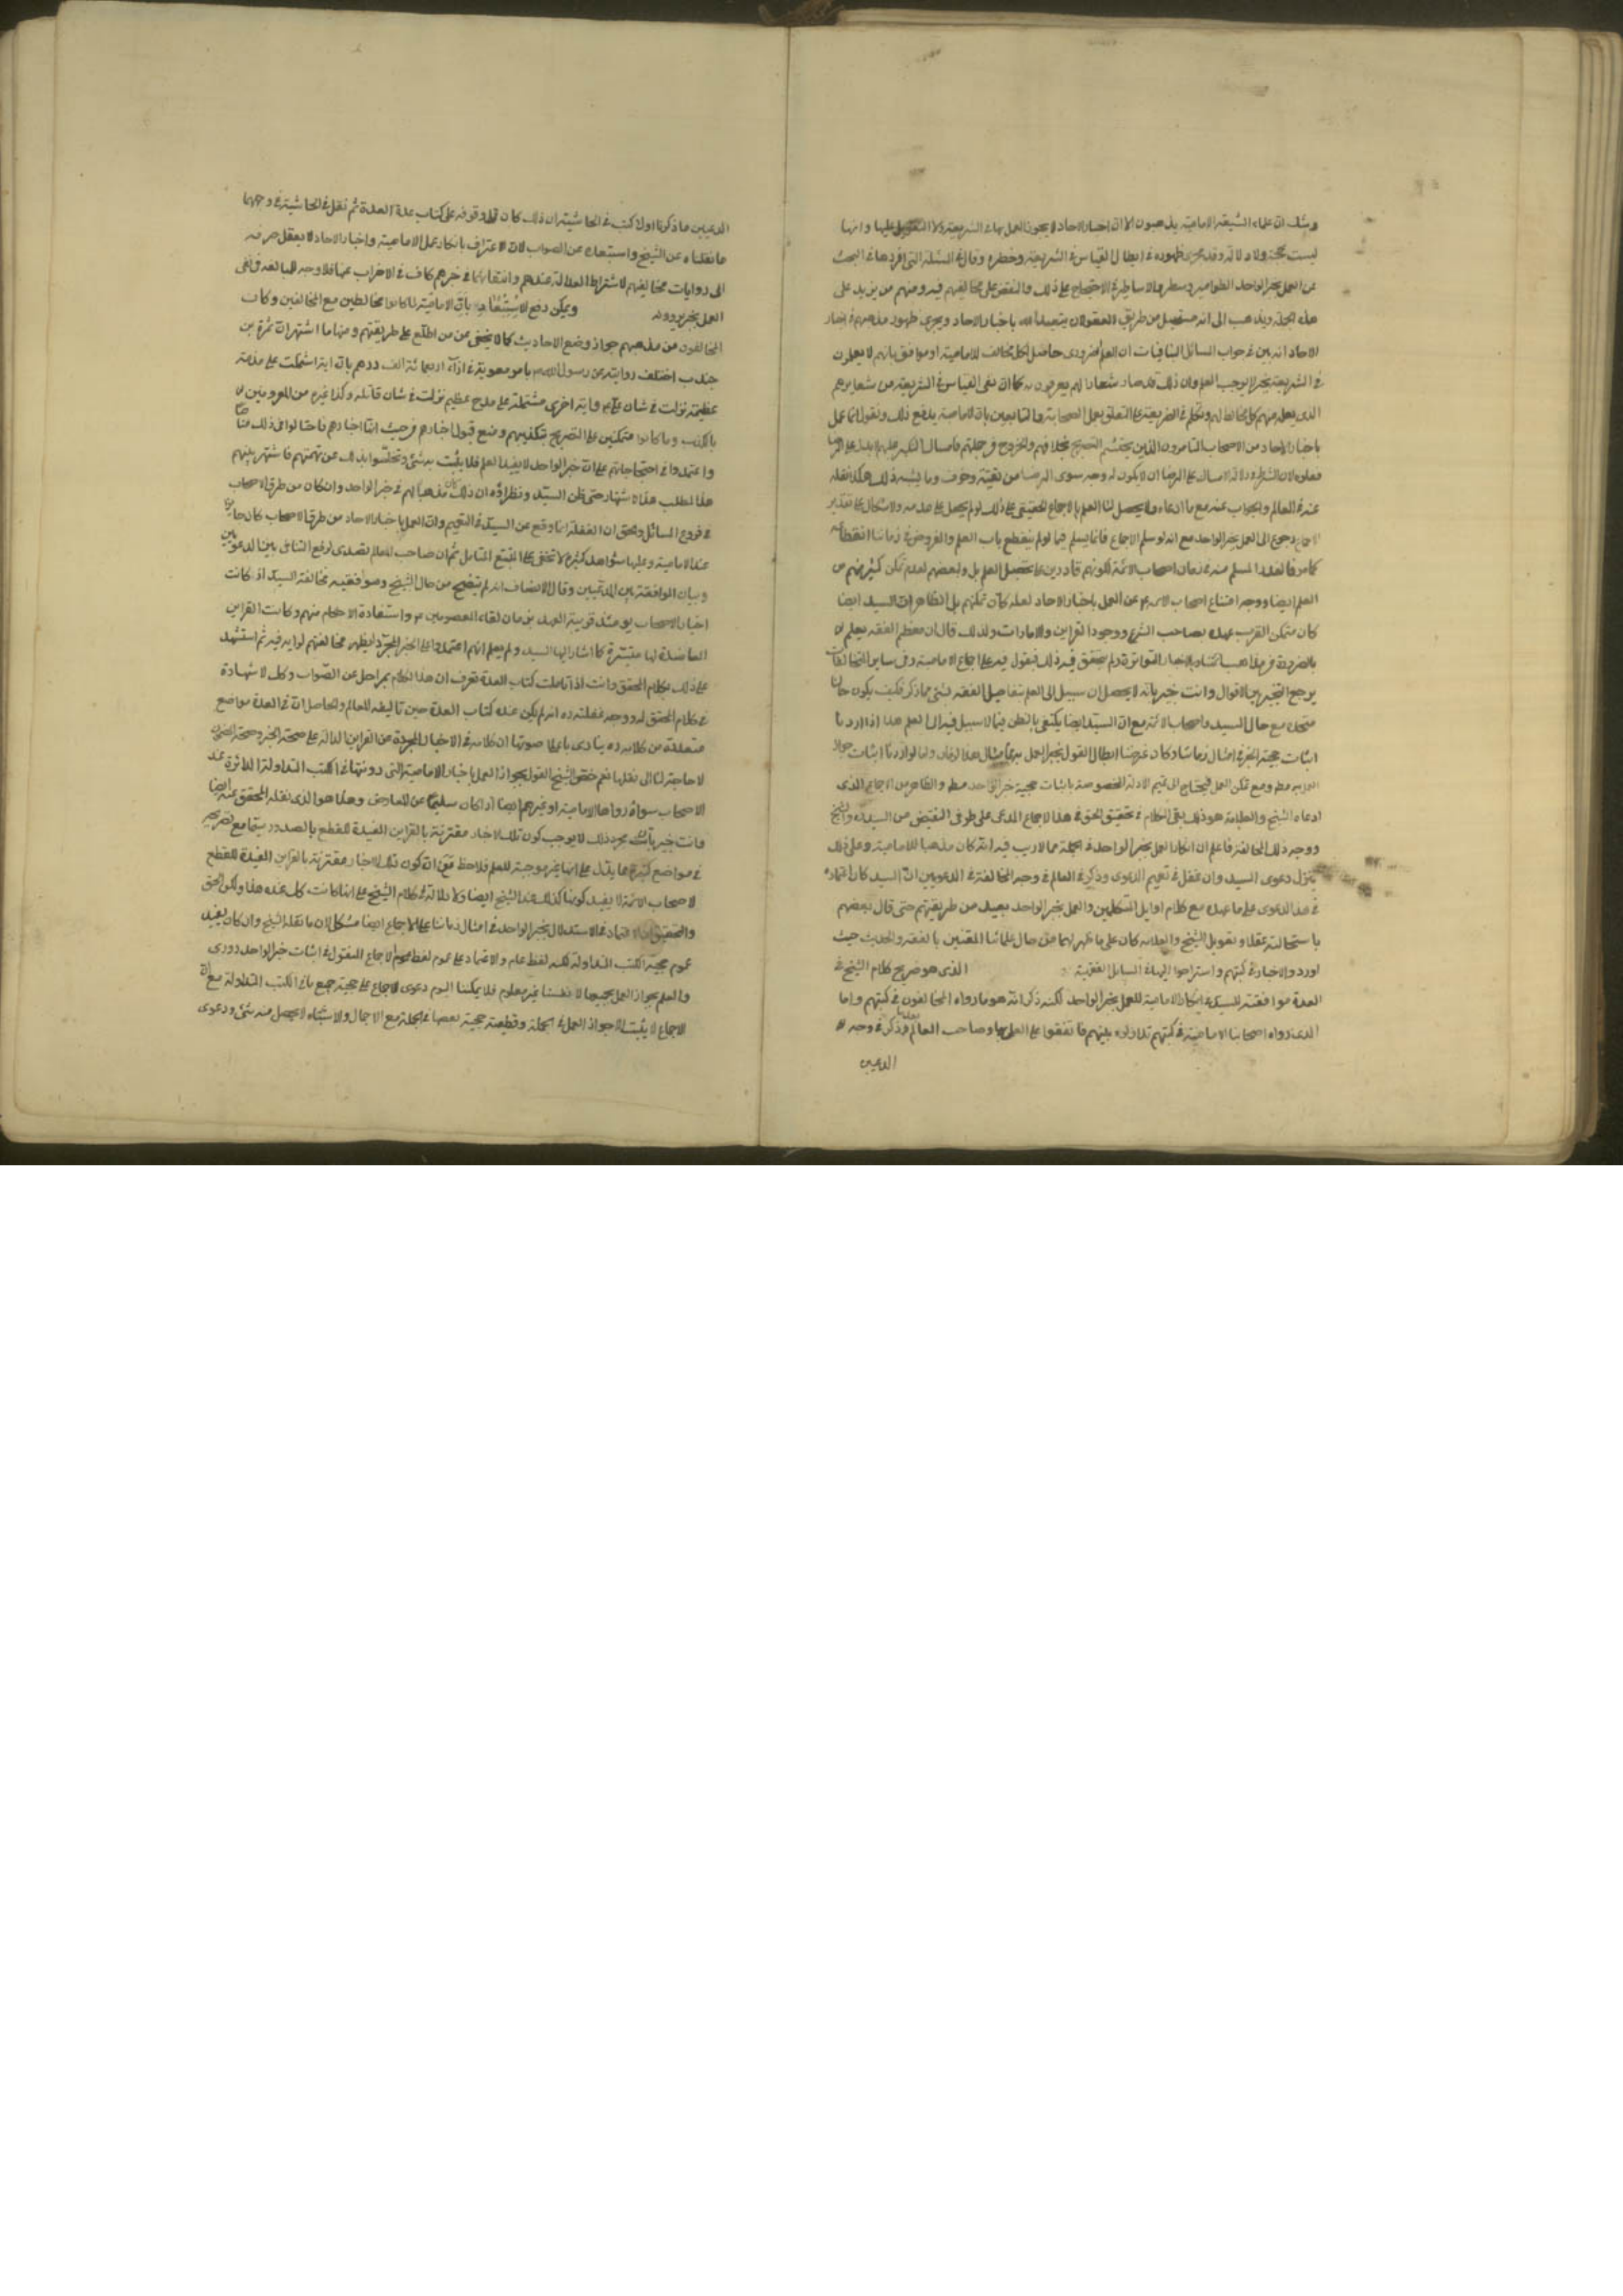 علماء الشيعة الامامية يذهبون الى ان اخبار الاحاد لا يجوز العمل بها في الشريعة ولا التعويل عليها وانها
ليست بحجة ولا دلالة وقد ظهوره في ابطال القياس في الشريعة وخطره وقال في المسئلة التي افردها في البحث
عن العمل بخبر الواحد الاحتجاج على ذلك والنقض على مخالفيهم فيه ومنهم من يزيد على
هذه الجملة ويذهب الى انه مستحيل من طريق العقول ان يتعبد الله باخبار الاحاد ويجري ظهور مذهبهم في اخبار
الاحاد انه بين في جواب المسائل التبانيات ان العلم الضروري حاصل لكل مخالف للامامية او موافق بانهم لا يعملون
في الشريعة بخبر لا يوجب العلم وان ذلك قد صار شعارا لهم يعرفون به كما ان نفي القياس في الشريعة من شعايرهم
الذي يعلم منهم كل مخالط لهم وتكلم في الذريعة على التعلق بعمل الصحابة والتابعين بان الامامية يدفع ذلك وتقول انما عمل
باخبار الاحاد من الاصحاب المتامرون الذين يحتشم التصريح بخلافهم والخروج عن جملتهم فامساك النكير عليهم لا يدل على الرضا
بفعلهم لان الشرط في دلالة الامساك على الرضا ان لا يكون له وجه سوى الرضا من تقية وخوف وما يشبه ذلك هكذا نقله
عنه في المعالم والجواب عنه مع ما ادعاه فلا يحصل لنا العلم بالاجماع الحقيقي على ذلك لو لم يحصل على عدمه ولا اشكال على تقدير
رجوع الى العمل بخبر الواحد مع انه لو سلم الاجماع فانما يسلم فيما لو لم ينقطع باب العلم والمفروض في زماننا انقطاعه
كما مر فالقدر المسلم منه في زمان اصحاب الائمة لكونهم قادرين على تحصيل العلم بل ولبعضهم لعدم تمكن كثير منهم من
العلم ايضا ووجه امتناع اصحاب الائمة عن العمل باخبار الاحاد لعله كان تمكنهم بل الظاهر ان السيد ايضا
كان متمكن القرب عهده بصاحب الشرع ووجود القراين والامارات ولذلك قال ان معظم الفقه يعلم
بالضرورة من مذاهب ائمتنا وبالاخبار المتواترة ولم يتحقق فيه ذلك فيعول فيه على اجماع الامامية وفي ساير الخلافيات
يرجع التخيير بين الاقوال وانت خبير بانه لا يحصل لنا سبيل الى العلم بتفاصيل الفقه بشيء مما ذكر فكيف يكون حالنا
متحدة مع حال السيد واصحاب الائمة مع ان السيد ايضا يكتفي بالظن فيما لا سبيل فيه الى العلم هذا اذا اردنا
اثبات حجية الخبر في امثال زماننا وكان غرضنا ابطال القول بتحريم العمل به في امثال هذا الزمان واما لو اردنا اثبات جواز
العمل به مط ومع تمكن العمل فيحتاج الى تتميم الادلة المخصوصة باثبات حجية خبر الواحد مط والظاهر من الاجماع الذي
ادعاه الشيخ والعلامة هو ذلك بقي الكلام في تحقيق الحق في هذا الاجماع المدعى على طرفي النقيض من السيد ره والشيخ
ووجه ذلك المخالفة فاعلم ان انكار العمل بخبر الواحد في الجملة مما لا ريب فيه انه كان مذهبا للامامية وعلى ذلك
ينزل دعوى السيد وان غفل في تعميم الدعوى وذكر في المعالم في وجه المخالفة في الدعويين ان السيد كان اعتماده
في هذا الدعوى على ما عهده مع كلام اوايل المتكلمين والعمل بخبر الواحد بعيد من طريقتهم حتى قال بعضهم
باستحالته عقلا وتعويل الشيخ والعلامة كان على ما ظهر لهما من حال علمائنا المعتنين بالفقه والحديث حيث
اوردوا الاخبار في كتبهم واستراحوا اليها في المسايل الفقهية الذي هو صريح كلام الشيخ في
العدة موافقته للسيد في انكار الامامية للعمل بخبر الواحد لكنه ذكر انه هو ما رواه المخالفون في كتبهم واما
الذي رواه اصحابنا الامامية في كتبهم تداولوه بينهم فاتفقوا على العمل بها وصاحب المعالم ذكر في وجه
الدعيين
الدعيين ما ذكرنا اولا كتب في الحاشية ان ذلك كان قبل وقوفه على كتاب عدة العدة ثم نقل في الحاشية في وجههما
ما نقلناه عن الشيخ واستبعده عن الصواب لان الاعتراف بانكار عمل الامامية واخبار الاحاد لا يعقل صرفه
الى روايات مخالفيهم لاشتراط العدالة عندهم وانتفائها في غيرهم كاف في الاضراب عنها فلا وجه للمبالغة في نفي
العمل بخبر يروونه ويمكن دفع الاستبعاد بان الامامية لما كانوا مخالطين مع المخالفين وكان
المخالفون من مذهبهم جواز وضع الاحاديث كما لا يخفى عن من اطلع على طريقتهم ومنها ما اشتهر ان سمرة بن
جندب اختلف رواية عن رسول الله بامر معوية في ازاء اربعمائة الف درهم بان اية اشتملت على مذمة
عظيمة نزلت في شان علي واية اخرى مشتملة على مدح عظيم نزلت في شان قاتله وكذا غيره من المعروفين
بالكذب وما كانوا متمكنين على التصريح بتكذيبهم ومنع قبول اخبارهم من حيث انها اخبارهم فاحتالوا في ذلك
واعتمدوا في احتجاجاتهم على ان خبر الواحد لا يفيد العلم فلا يثبت به شيء وتخلصوا بذلك عن تهمتهم فاشتهر بينهم
هذا المطلب هذا الاشتهار حتى ظن السيد ونظراؤه ان ذلك كان مذهبا لهم في خبر الواحد وان كان من طرق الاصحاب
في فروع المسائل والحق ان الغفلة انما وقع عن السيد في التعميم وان العمل باخبار الاحاد من طرق الاصحاب كان جايزا
عند الامامية وعليها شواهد كثيرة لا تخفى على المتتبع المتامل ثم ان صاحب المعالم تصدى لرفع التنافي بين الدعويين
وبيان الموافقة بين المدعيين وقال الانصاف انه لم يتضح من حال الشيخ وموافقيه مخالفة السيد اذ كانت
اخبار الاصحاب يومئذ قريبة العهد بزمان لقاء المعصومين واستفادة الاحكام منهم وكانت القراين
العاضدة لها متيسرة كما اشار اليها السيد ولم يعلم انهم اعتمدوا على الخبر المجرد ليظهر مخالفتهم لرايه فيه ثم استشهد
على ذلك بكلام المحقق وانت اذا تاملت كتاب العدة تعرف ان هذا الكلام بمراحل عن الصواب وكل لا شهادة
في كلام المحقق له ووجه غفلته ره انه لم يكن عنده كتاب العدة حين تاليفه للمعالم والحاصل ان في العدة مواضع
متعددة من كلامه ره ينادي باعلا صوتها ان كلامه في الاخبار المجردة عن القراين الدالة على صحة الخبر وصحة المضمون
لا حاجة لنا الى نقلها نعم خص الشيخ القول بجواز العمل باخبار الامامية التي دونتها في الكتب المتداولة الدائرة عند
الاصحاب سواء رواها الامامية او غيرهم ايضا اذا كان سليما عن المعارض وهكذا هو الذي نقله المحقق عنه ايضا
وانت خبير بان مجرد ذلك لا يوجب كون تلك الاخبار مقترنة بالقراين المفيدة للقطع بالصدور سيما مع تصريحه
في مواضع كثيرة مما يدل على انها غير موجبة للعلم فلاحظ مع ان كون تلك الاخبار مقترنة بالقراين المفيدة للقطع
لاصحاب الائمة لا يفيد كونها كذلك عند الشيخ ايضا ولا دلالة في كلام الشيخ على انها كانت كل عنده هذا ولكن الحق
والتحقيق ان الاعتماد في الاستدلال بخبر الواحد في امثال زماننا على الاجماع ايضا مشكل لان ما نقله الشيخ وان كان يفيد
عموم حجية الكتب المتداولة لكنه لفظ عام والاعتماد على عموم لفظ الاجماع المنقول في اثبات خبر الواحد دوري
والعلم بجواز العمل بجميعها لا نفسنا غير معلوم فلا يمكننا اليوم دعوى الاجماع على حجية جميع ما في الكتب المتداولة مع ان
الاجماع لا يثبت الا جواز العمل في الجملة وقطعية حجية بعضها في الجملة مع الاجمال والاشتباه لا يحصل منه شيء ودعوى